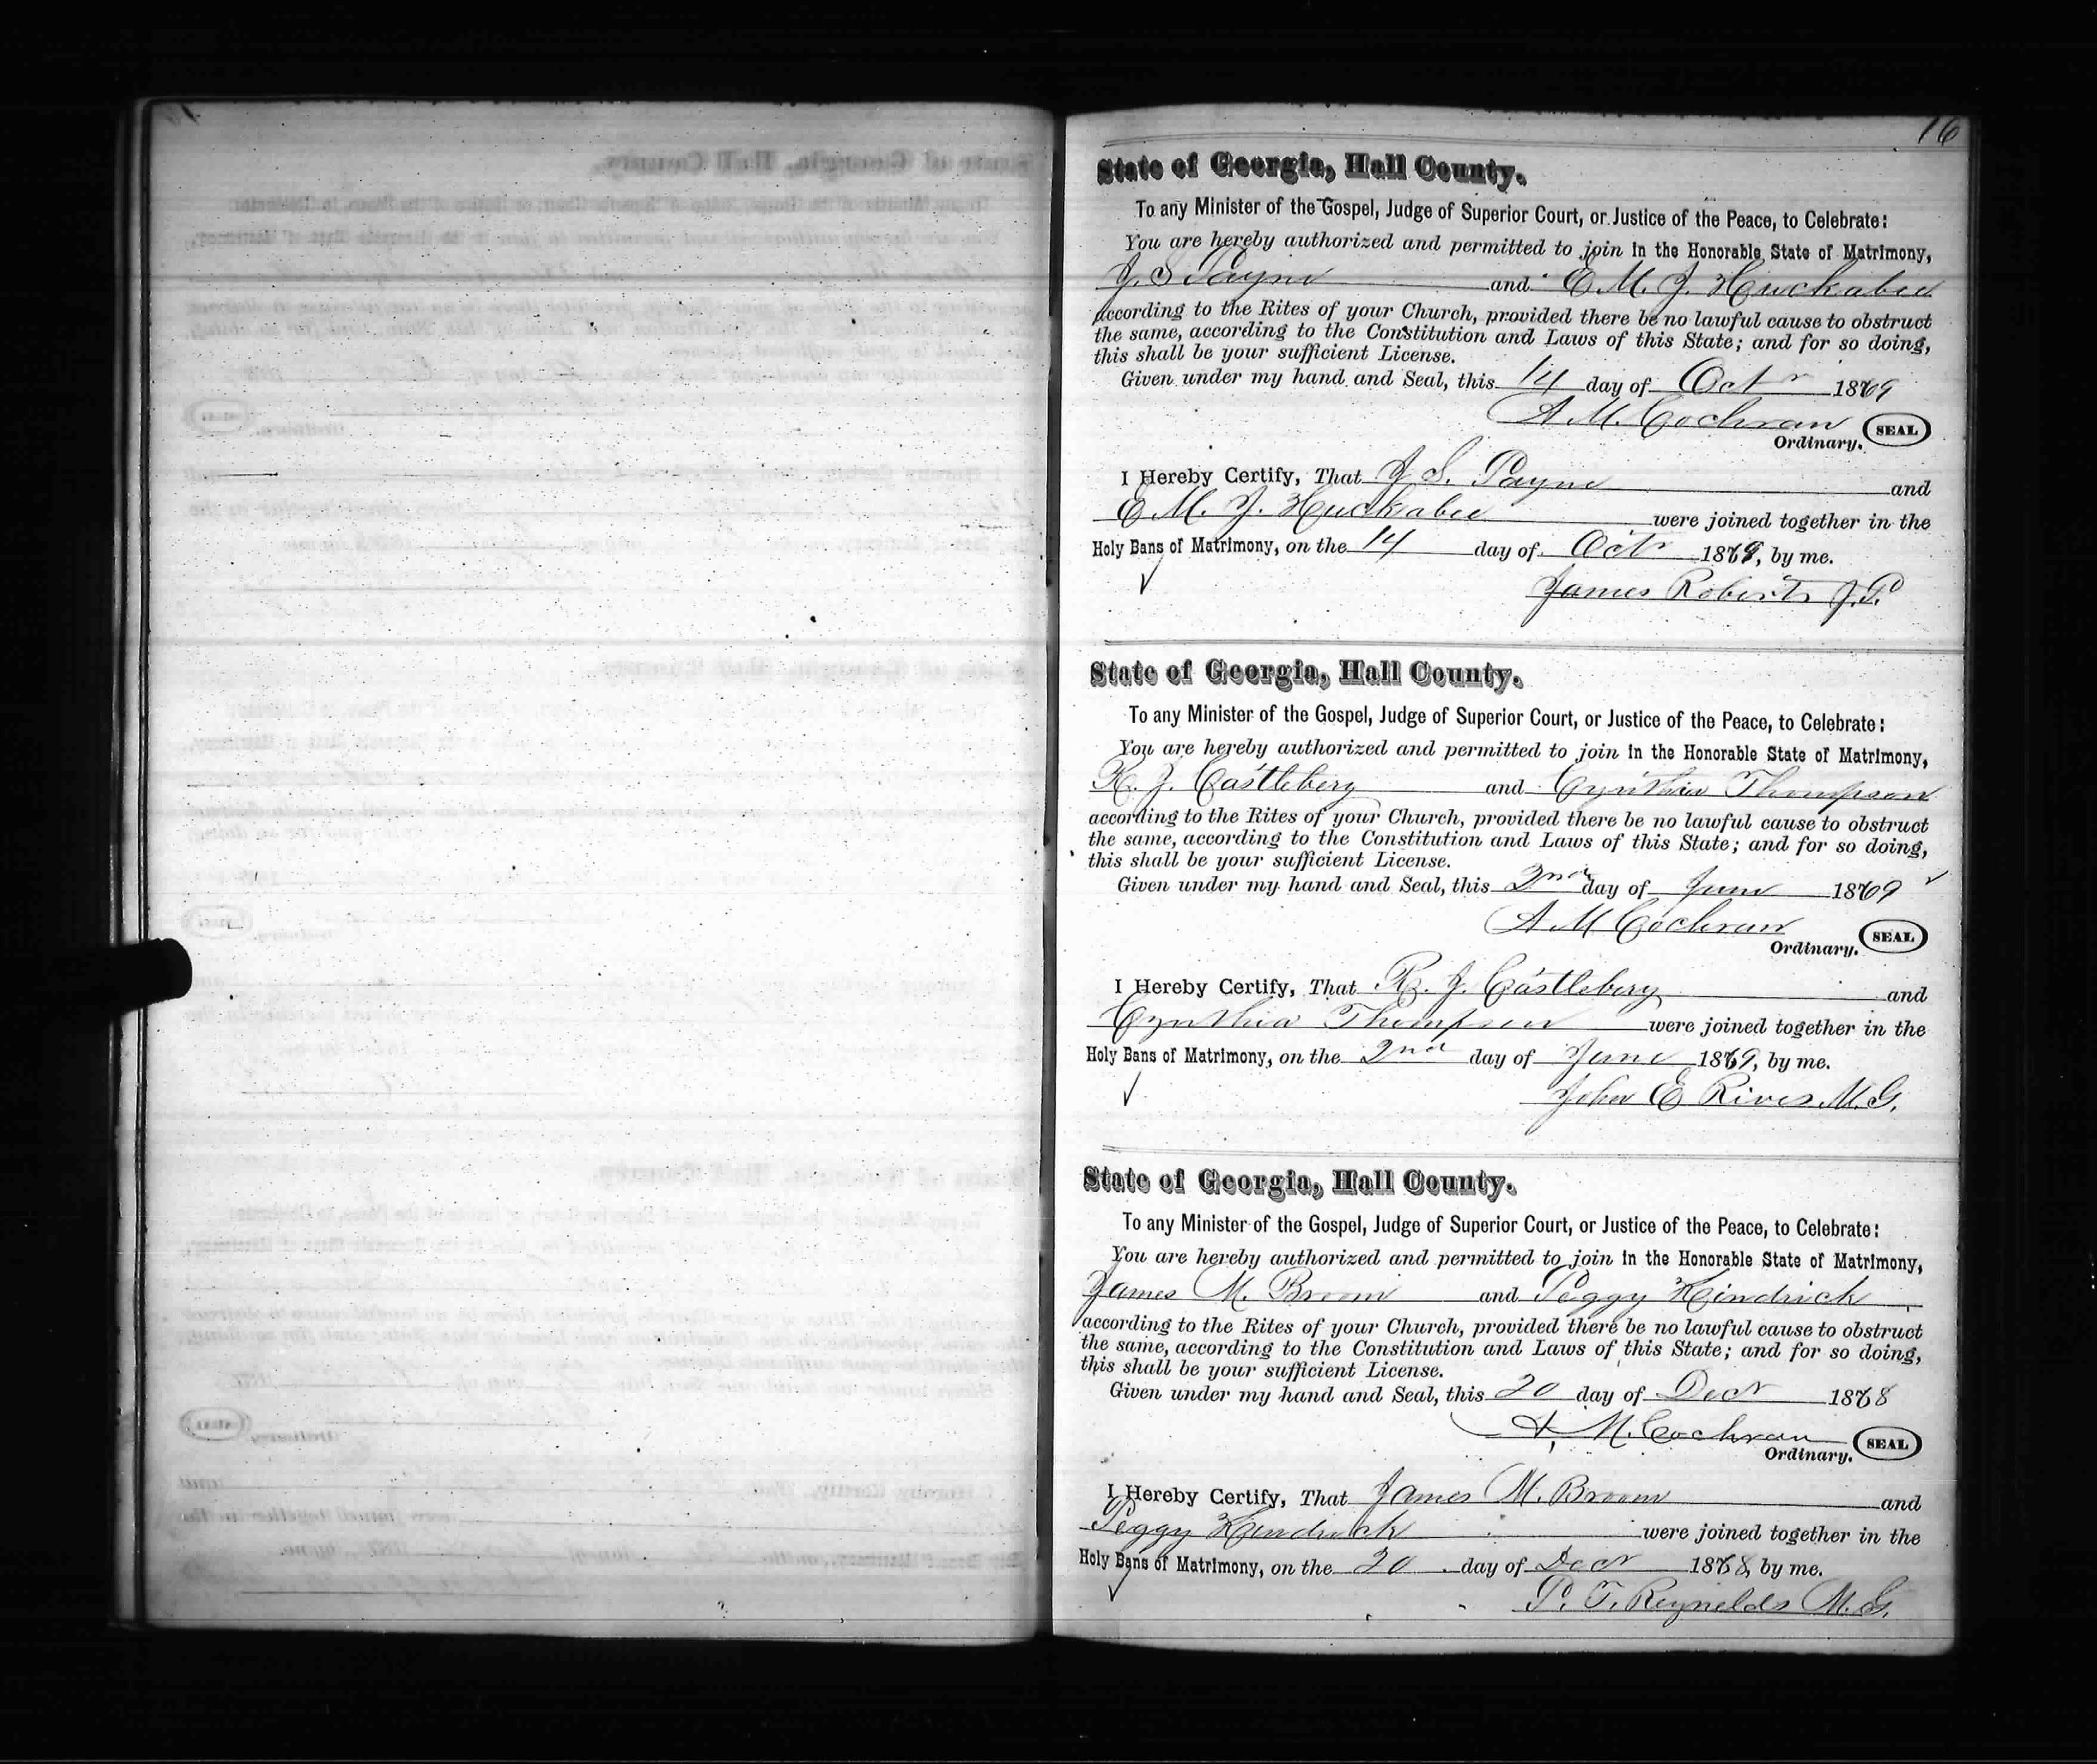 16
State of Georgia, Hall County.
To any Minister of the Gospel, Judge of Superior Court, or Justice of the Peace, to Celebrate:
You are hereby authorized and permitted to join in the Honorable State of Matrimony,
J. S Payne and E M. J. Huckabee
according to the Rites of your Church, provided there be no lawful cause to obstruct
the same, according to the Constitution and Laws of this State; and for so doing,
this shall be your sufficient License.
Given under my hand and Seal, this 14 day of Octr 1869
A. M. Cochran SEAL
Ordinary.
I Hereby Certify, That J S. Payne and
E M. J. Huckabee were joined together in the
Holy Bans of Matrimony, on the 14 day of Octr 1869, by me.
James Roberts J.P.
State of Georgia, Hall County.
To any Minister of the Gospel, Judge of Superior Court, or Justice of the Peace, to Celebrate:
You are hereby authorized and permitted to join in the Honorable State of Matrimony,
R. J. Castleberg and Cynthia Thompson
according to the Rites of your Church, provided there be no lawful cause to obstruct
the same, according to the Constitution and Laws of this State; and for so doing,
this shall be your sufficient License.
Given under my hand and Seal, this 2nd day of June 1869
A M Cochran SEAL
Ordinary.
I Hereby Certify, That R. J. Castleberg and
Cynthia Thompson were joined together in the
Holy Bans of Matrimony, on the 2nd day of June 1869, by me.
John E Rives M.G.
State of Georgia, Hall County.
To any Minister of the Gospel, Judge of Superior Court, or Justice of the Peace, to Celebrate:
You are hereby authorized and permitted to join in the Honorable State of Matrimony,
James M. Broom and Peggy Kendrick
according to the Rites of your Church, provided there be no lawful cause to obstruct
the same, according to the Constitution and Laws of this State; and for so doing,
this shall be your sufficient License.
Given under my hand and Seal, this 20 day of Decr 1868
A. M. Cochran SEAL
Ordinary.
I Hereby Certify, That James M. Broom and
Peggy Kendrick were joined together in the
Holy Bans of Matrimony, on the 20 day of Decr 1868, by me.
P. T. Reynolds M.G.